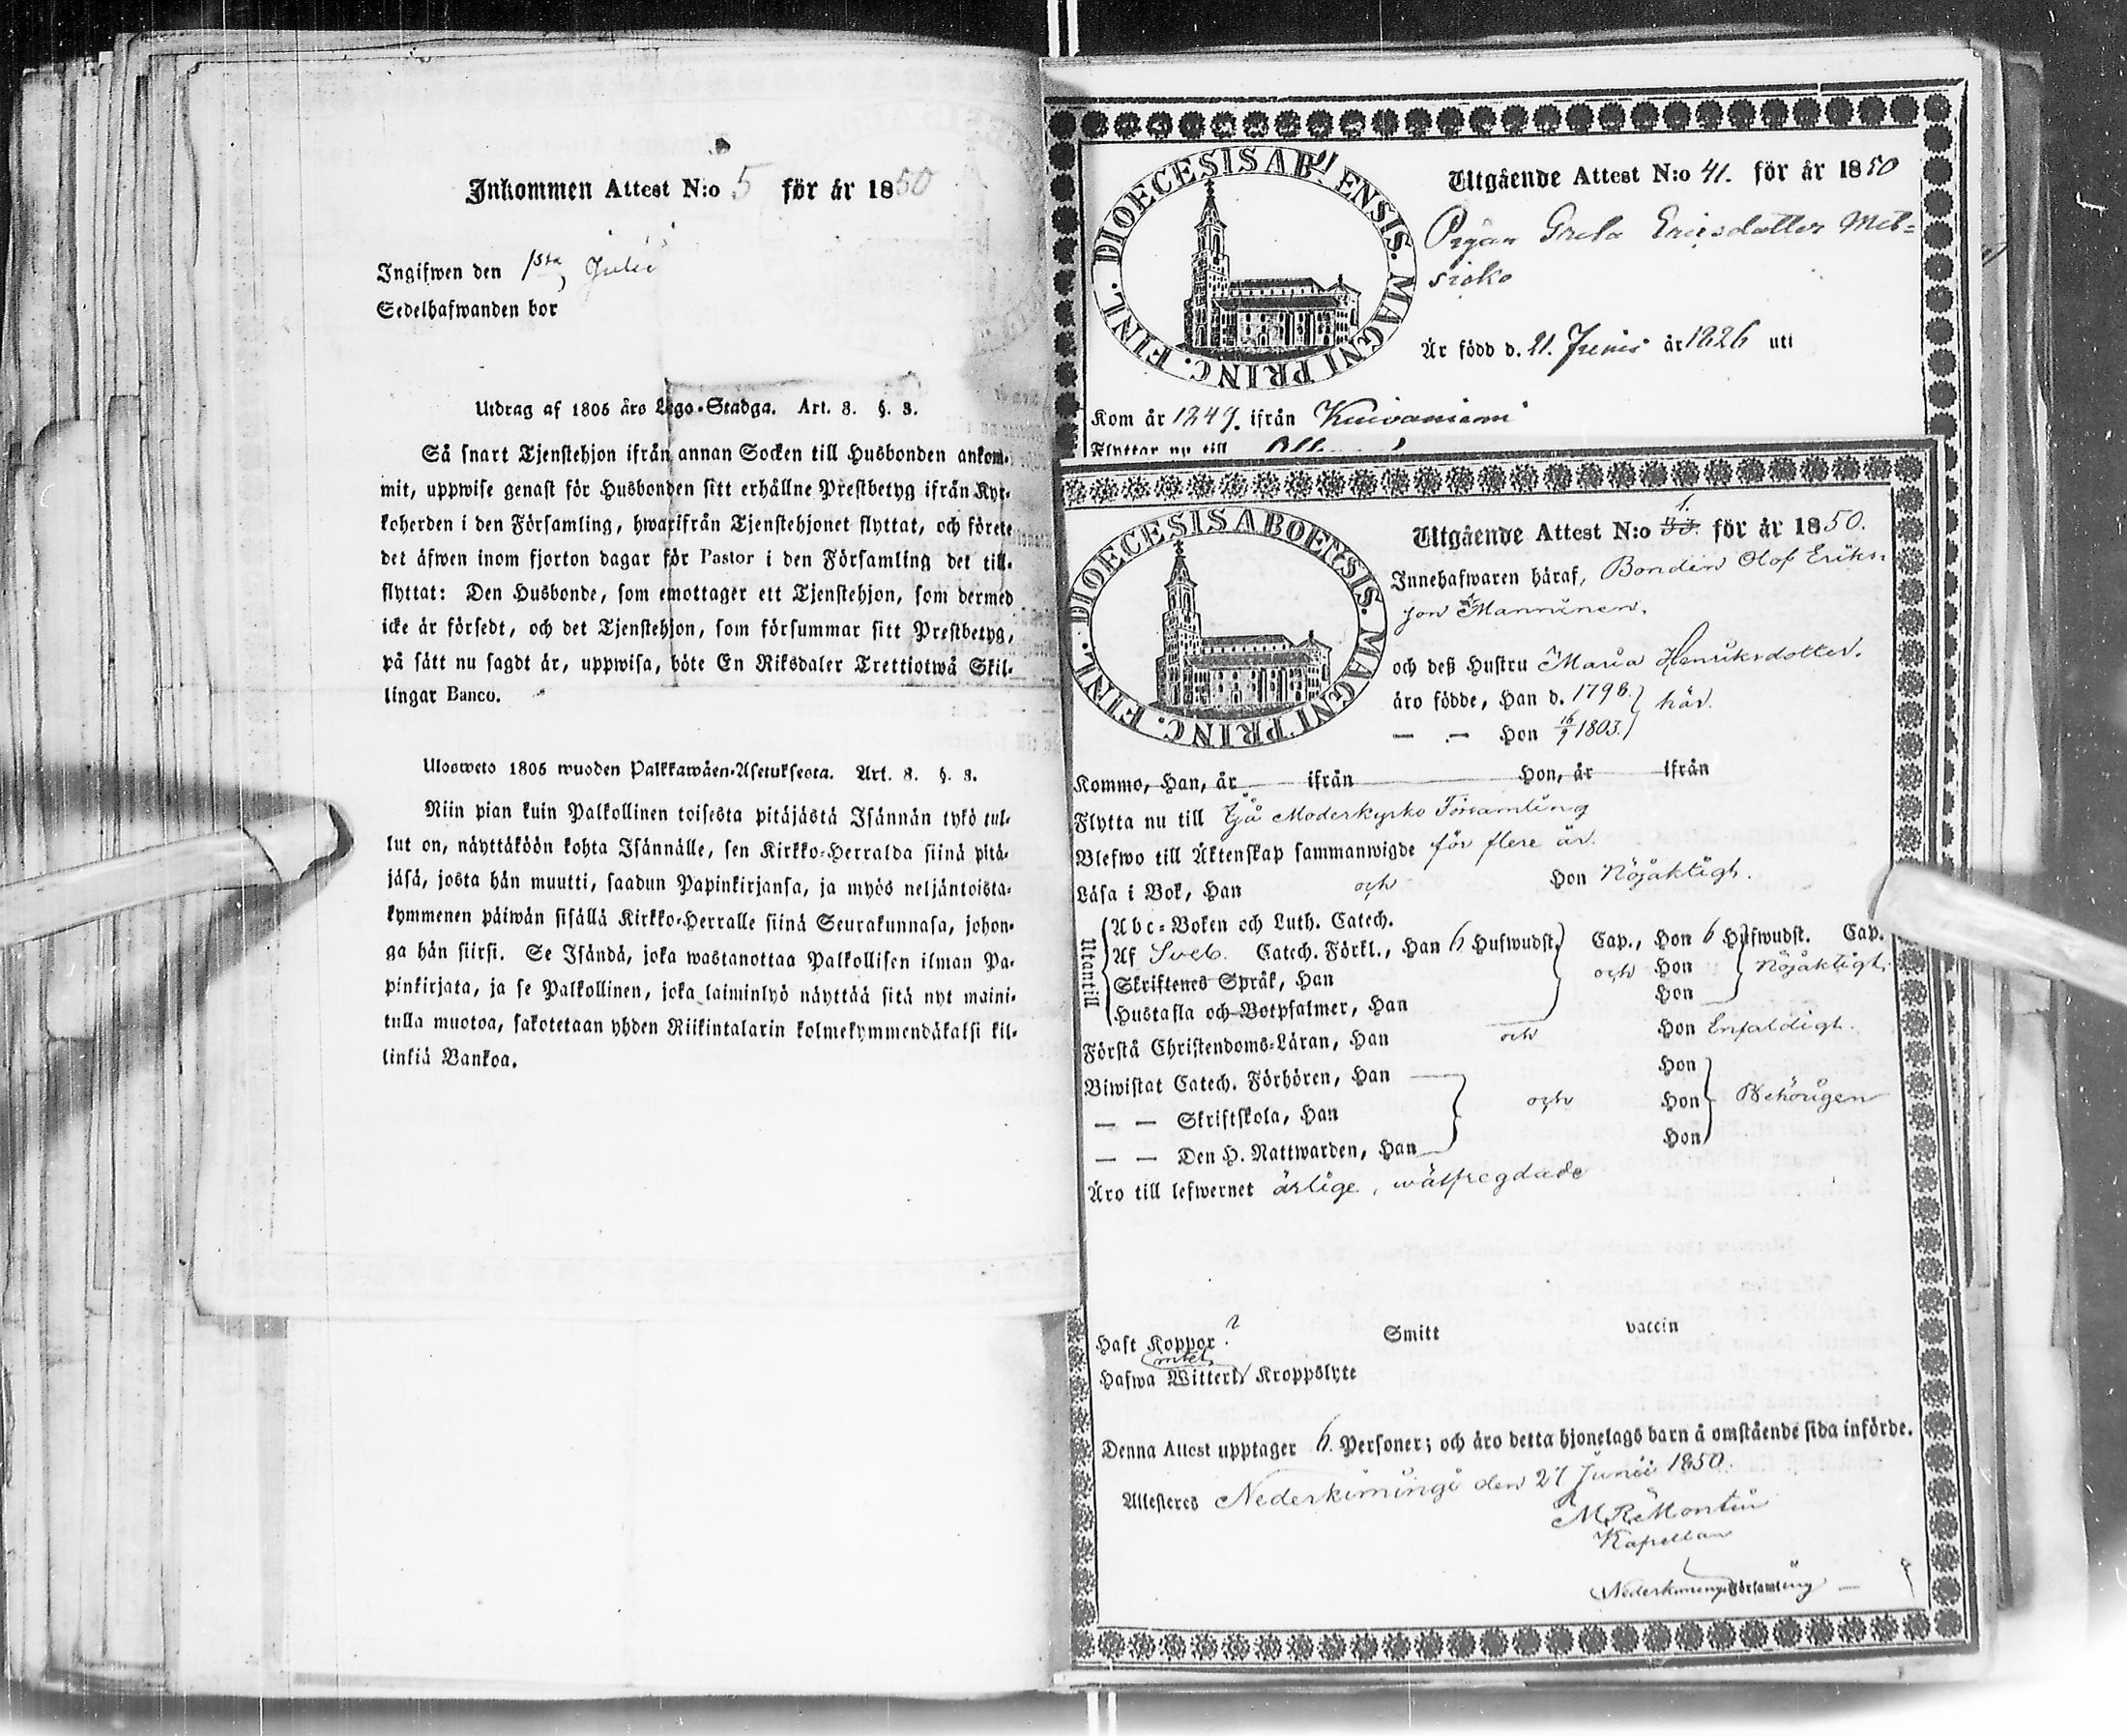 Inkommen Attest N:o 5 för år 1850
Ingifwen den 1sta Julii
Sedelhafwanden bor
Utdrag af 1805 års Lego-Stadga. Art. 8. §. 3.
Så snart Tjenstehjon ifrån annan Socken till Husbonden ankom-
mit, uppwise genast för Husbonden sitt erhållne Prestbetyg ifrån Kyr-
koherden i den Församling, hwarifrån Tjenstehjonet flyttat, och förete
det äfwen inom fjorton dagar för Pastor i den Församling det till-
flyttat: Den Husbonde, som emottager ett Tjenstehjon, som dermed
icke är försedt, och det Tjenstehjon, som försummar sitt Prestbetyg,
på sätt nu sagdt är, uppwisa, böte En Riksdaler Trettiotwå Skil-
lingar Banco.
Ulosweto 1805 wuoden Palkkawäen-Asetuksesta. Art. 8. §. 3.
Niin pian kuin Palkollinen toisesta pitäjästä Isännän tykö tul-
lut on, näyttäköön kohta Isännälle, sen Kirkko-Herralda siinä pitä-
jäsä, josta hän muutti, saadun Papinkirjansa, ja myös neljäntoista-
kymmenen päiwän sisällä Kirkko-Herralle siinä Seurakunnasa, johon-
ga hän siirsi. Se Isändä, joka wastanottaa Palkollisen ilman Pa-
pinkirjata, ja se Palkollinen, joka laiminlyö näyttää sitä nyt maini-
tulla muotoa, sakotetaan yhden Riikintalarin kolmekymmendäkaksi kil-
linkiä Bankoa.
DIOECESIS ABOENSIS. MAGNI PRINC. FINL.
Utgående Attest N:o 41. för år 1850
Pigan Greta Ericsdotter Met-
sisko
Är född d. 21. Junii år 1826 uti
Kom år 1847. ifrån Kuivaniemi
Flyttar nu till
DIOECESIS ABOENSIS. MAGNI PRINC. FINL.
Utgående Attest N:o 1. för år 1850.
Innehafwaren häraf, Bonden Olof Eriks-
son Manninen.
och deß Hustru Maria Henriksdotter.
äro födde, Han d. 1798. här.
— — Hon 16/9 1803.
Kommo, Han, år ifrån Hon, år ifrån
Flytta nu till Ijå Moderkyrko Församling
Blefwo till Äktenskap sammanwigde för flere år.
Läsa i Bok, Han och Hon Nöjaktigt.
Utantill
Abc-Boken och Luth. Catech.
Af Sveb. Catech. Förkl., Han 6 Hufwudst. Cap., Hon 6 Hufwudst. Cap.
Skriftenes Språk, Han och Hon Nöjaktigt.
Hustafla och Botpsalmer, Han Hon
Förstå Christendoms-Läran, Han och Hon Enfaldigt.
Biwistat Catech. Förhören, Han Hon
— — Skriftskola, Han och Hon Behörigen
— — Den H. Nattwarden, Han Hon
Äro till lefwernet ärlige, wälfregdade
Haft Koppor ? Smitt vaccin
Hafwa Witterl. Kroppslyte
intet
Denna Attest upptager 6. Personer; och äro detta hjonelags barn å omstående sida införde.
Attesteres Nederkimingi den 27 Junii 1850.
M R Montin
Kapellan
Nederkimingi Församling